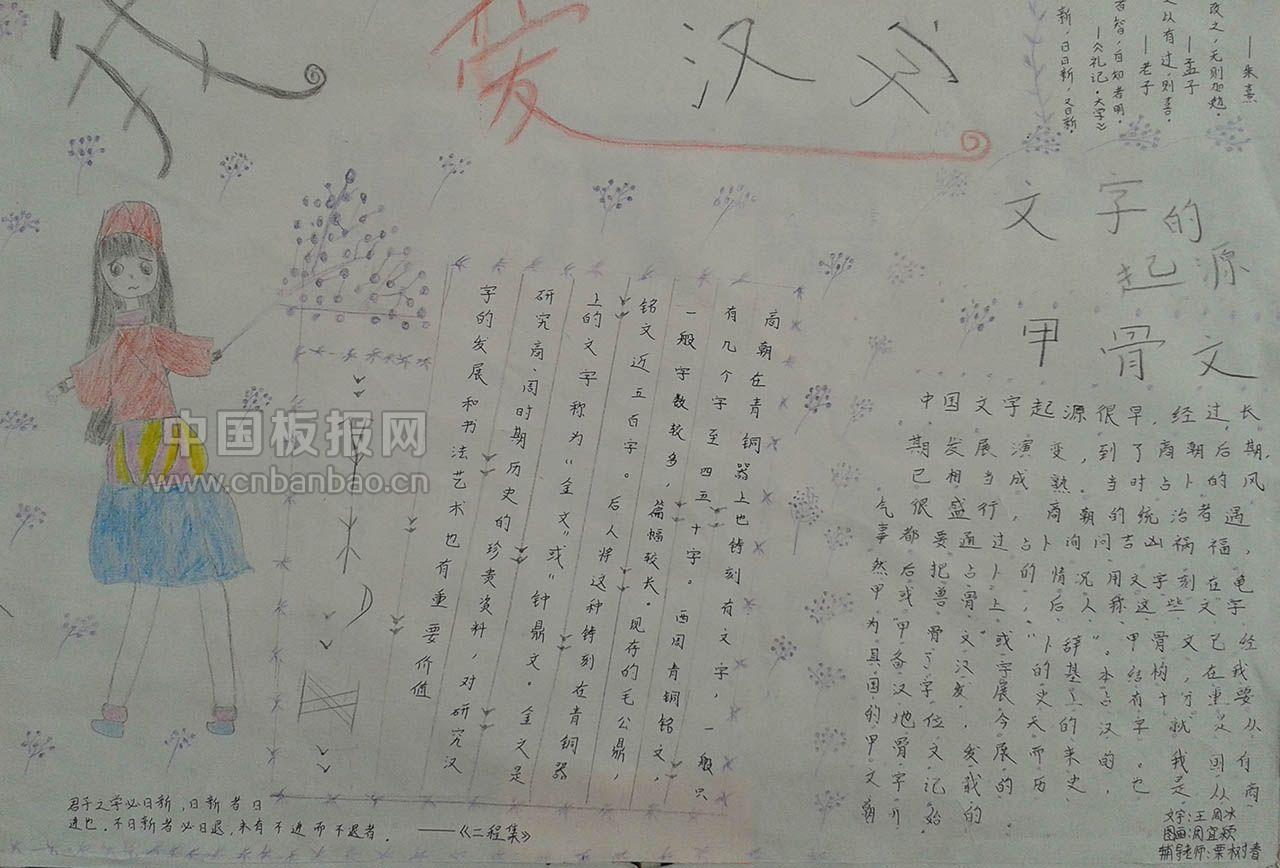 爱汉字
——朱熹
改之,无则加勉。
——孟子
又以有过,则喜。
——老子
者智,自知者明。
——《礼记·大学》
新,日日新,又日新。
文字的
起源
甲骨文
中国文字起源很早,经过长
期发展演变,到了商朝后期,
已相当成熟。当时占卜的风
气很盛行,商朝的统治者遇
事都要通过占卜询问吉凶祸福,
然后把占卜的情况用文字刻在龟
甲或兽骨上,后人称这些文字
为“甲骨文”或“卜辞”。甲骨文已经
具备了汉字的基本结构,在我
国汉字发展史上占有十分重要
的地位,今天的汉字就是从
甲骨文发展而来的。我国有
文字记载的历史,也是从商
朝开始的
商朝在青铜器上也铸刻有文字,一般只
有几个字至四五十字。西周青铜铭文,
一般字数较多,篇幅较长。现存的毛公鼎,
铭文近五百字。后人将这种铸刻在青铜器
上的文字称为“金文”或“钟鼎文”。金文是
研究商、周时期历史的珍贵资料,对研究汉
字的发展和书法艺术也有重要价值
中国板报网
www.cnbanbao.cn
君子之学必日新,日新者日
进也。不日新者必日退,未有不进而不退者。
——《二程集》
文字:王周冰
图画:周宜颖
辅导老师:栗树青